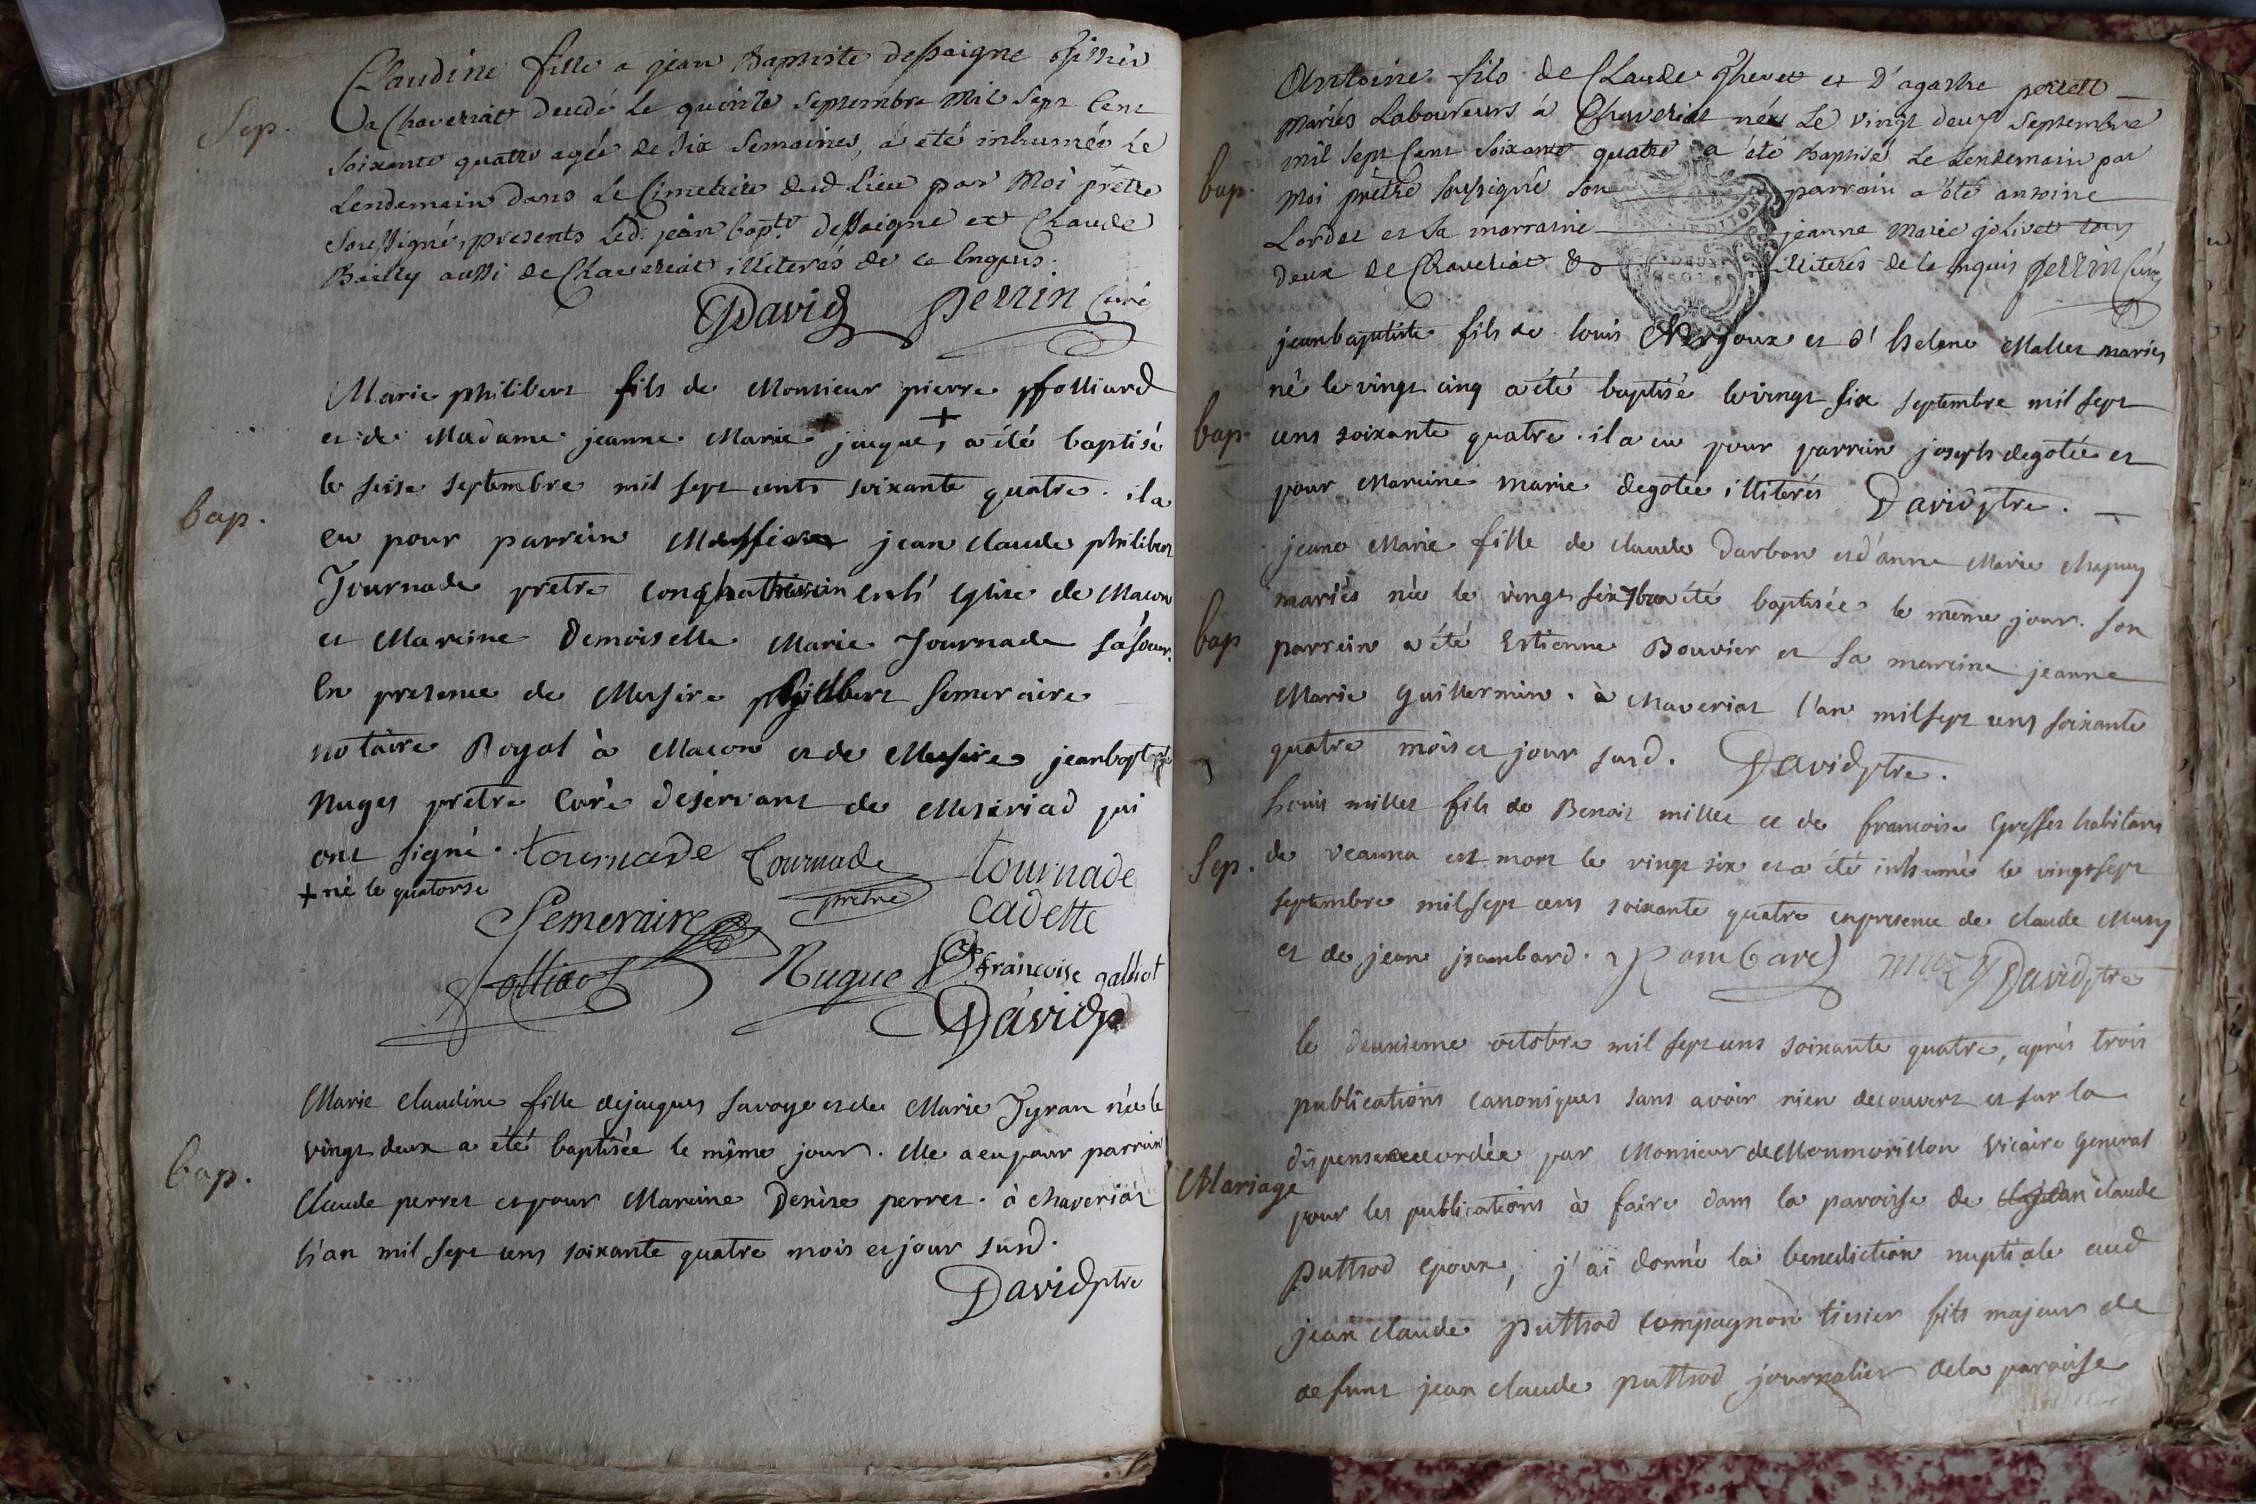 Claudine fille a jean Baptiste dessaigne
Sep.
a Chaveriat decedé le quinze septembre mil sept cent
soixante quatre agée de six semaines, a été inhumée le
Lendemain dans le Cimetiere dud. lieu par Moi prêtre
soussigné, presents led. jean bapte dessaigne et Claude
Bailly aussi de Chaveriat illiterés de ce enquis.
David perrin Curé
Marie philibert fils de Monsieur pierre ffolliard
et de Madame jeanne Marie jacque, + a été baptisé
le seise septembre mil sept cents soixante quatre. il a
bap.
eu pour parrein Messire jean claude philibert
Tournade prêtre en l'église de Macon
et Mareine Demoiselle Marie Tournade sa soeur.
En presence de Messire philibert Semeraire
notaire Royal à Macon et de Messire jeanbapte
Nuges prêtre Curé deservant de Meseriad qui
ont signé. tournade Tournade prêtre tournade cadette
+ né le quatorse
Semeraire
folliard Nugue françoise galliot
David p
Marie claudine fille de jacques Savoye et de Marie Tyran née le
vingt deux a été baptisée le même jour. elle a eu pour parrain
bap.
Claude perret et pour Mareine Denise perret. à chaveriat
l'an mil sept cens soixante quatre mois et jour susd.
David ptre
Antoine fils de Claude Thevet et D'agathe perrett
mariés Laboureurs à Chaveriat né Le vingt deux septembre
mil sept Cent soixante quatre a été Baptisé Le Lendemain par
bap.
moi prêtre soussigné son parrain a été antoine
Lordet et sa marraine jeanne marie jolivet tous
deux de Chaveriat & illiterés de ce enquis perrin Curé
jeanbaptiste fils de louis et d'helene Mallet mariés
né le vingt cinq a été baptisé le vingt six septembre mil sept
bap.
cens soixante quatre. il a eu pour parrein joseph degotée et
pour Mareine marie degotée illiterés David ptre.
jeane Marie fille de claude Darbon et d'anne Marie chapuy
mariés née le vingt six 7bre a été baptisée le même jour. son
bap
parrein a été Estienne Bouvier et sa mareine jeanne
Marie guillermin. à chaveriat l'an mil sept cens soixante
quatre mois et jour susd. David ptre.
Louis millet fils de Benoit millet et de francoise Greffet habitans
Sep.
de veauxa est mort le vingt six et a été inhumé le vingt sept
septembre mil sept cens soixante quatre en presence de claude Muzy
et de jean jsambard. muzy David ptre
le deuxieme octobre mil sept cens soixante quatre, après trois
publications canoniques sans avoir rien decouvert et sur la
dispense accordée par Monsieur de Monmorillon Vicaire General
Mariage
pour les publications à faire dans la paroisse de claude
puttrod epoux, j'ai donné la benediction nuptiale aud
jean claude puttrod compagnon tissier fils majeur de
defunt jean claude puttrod journalier de la paroisse